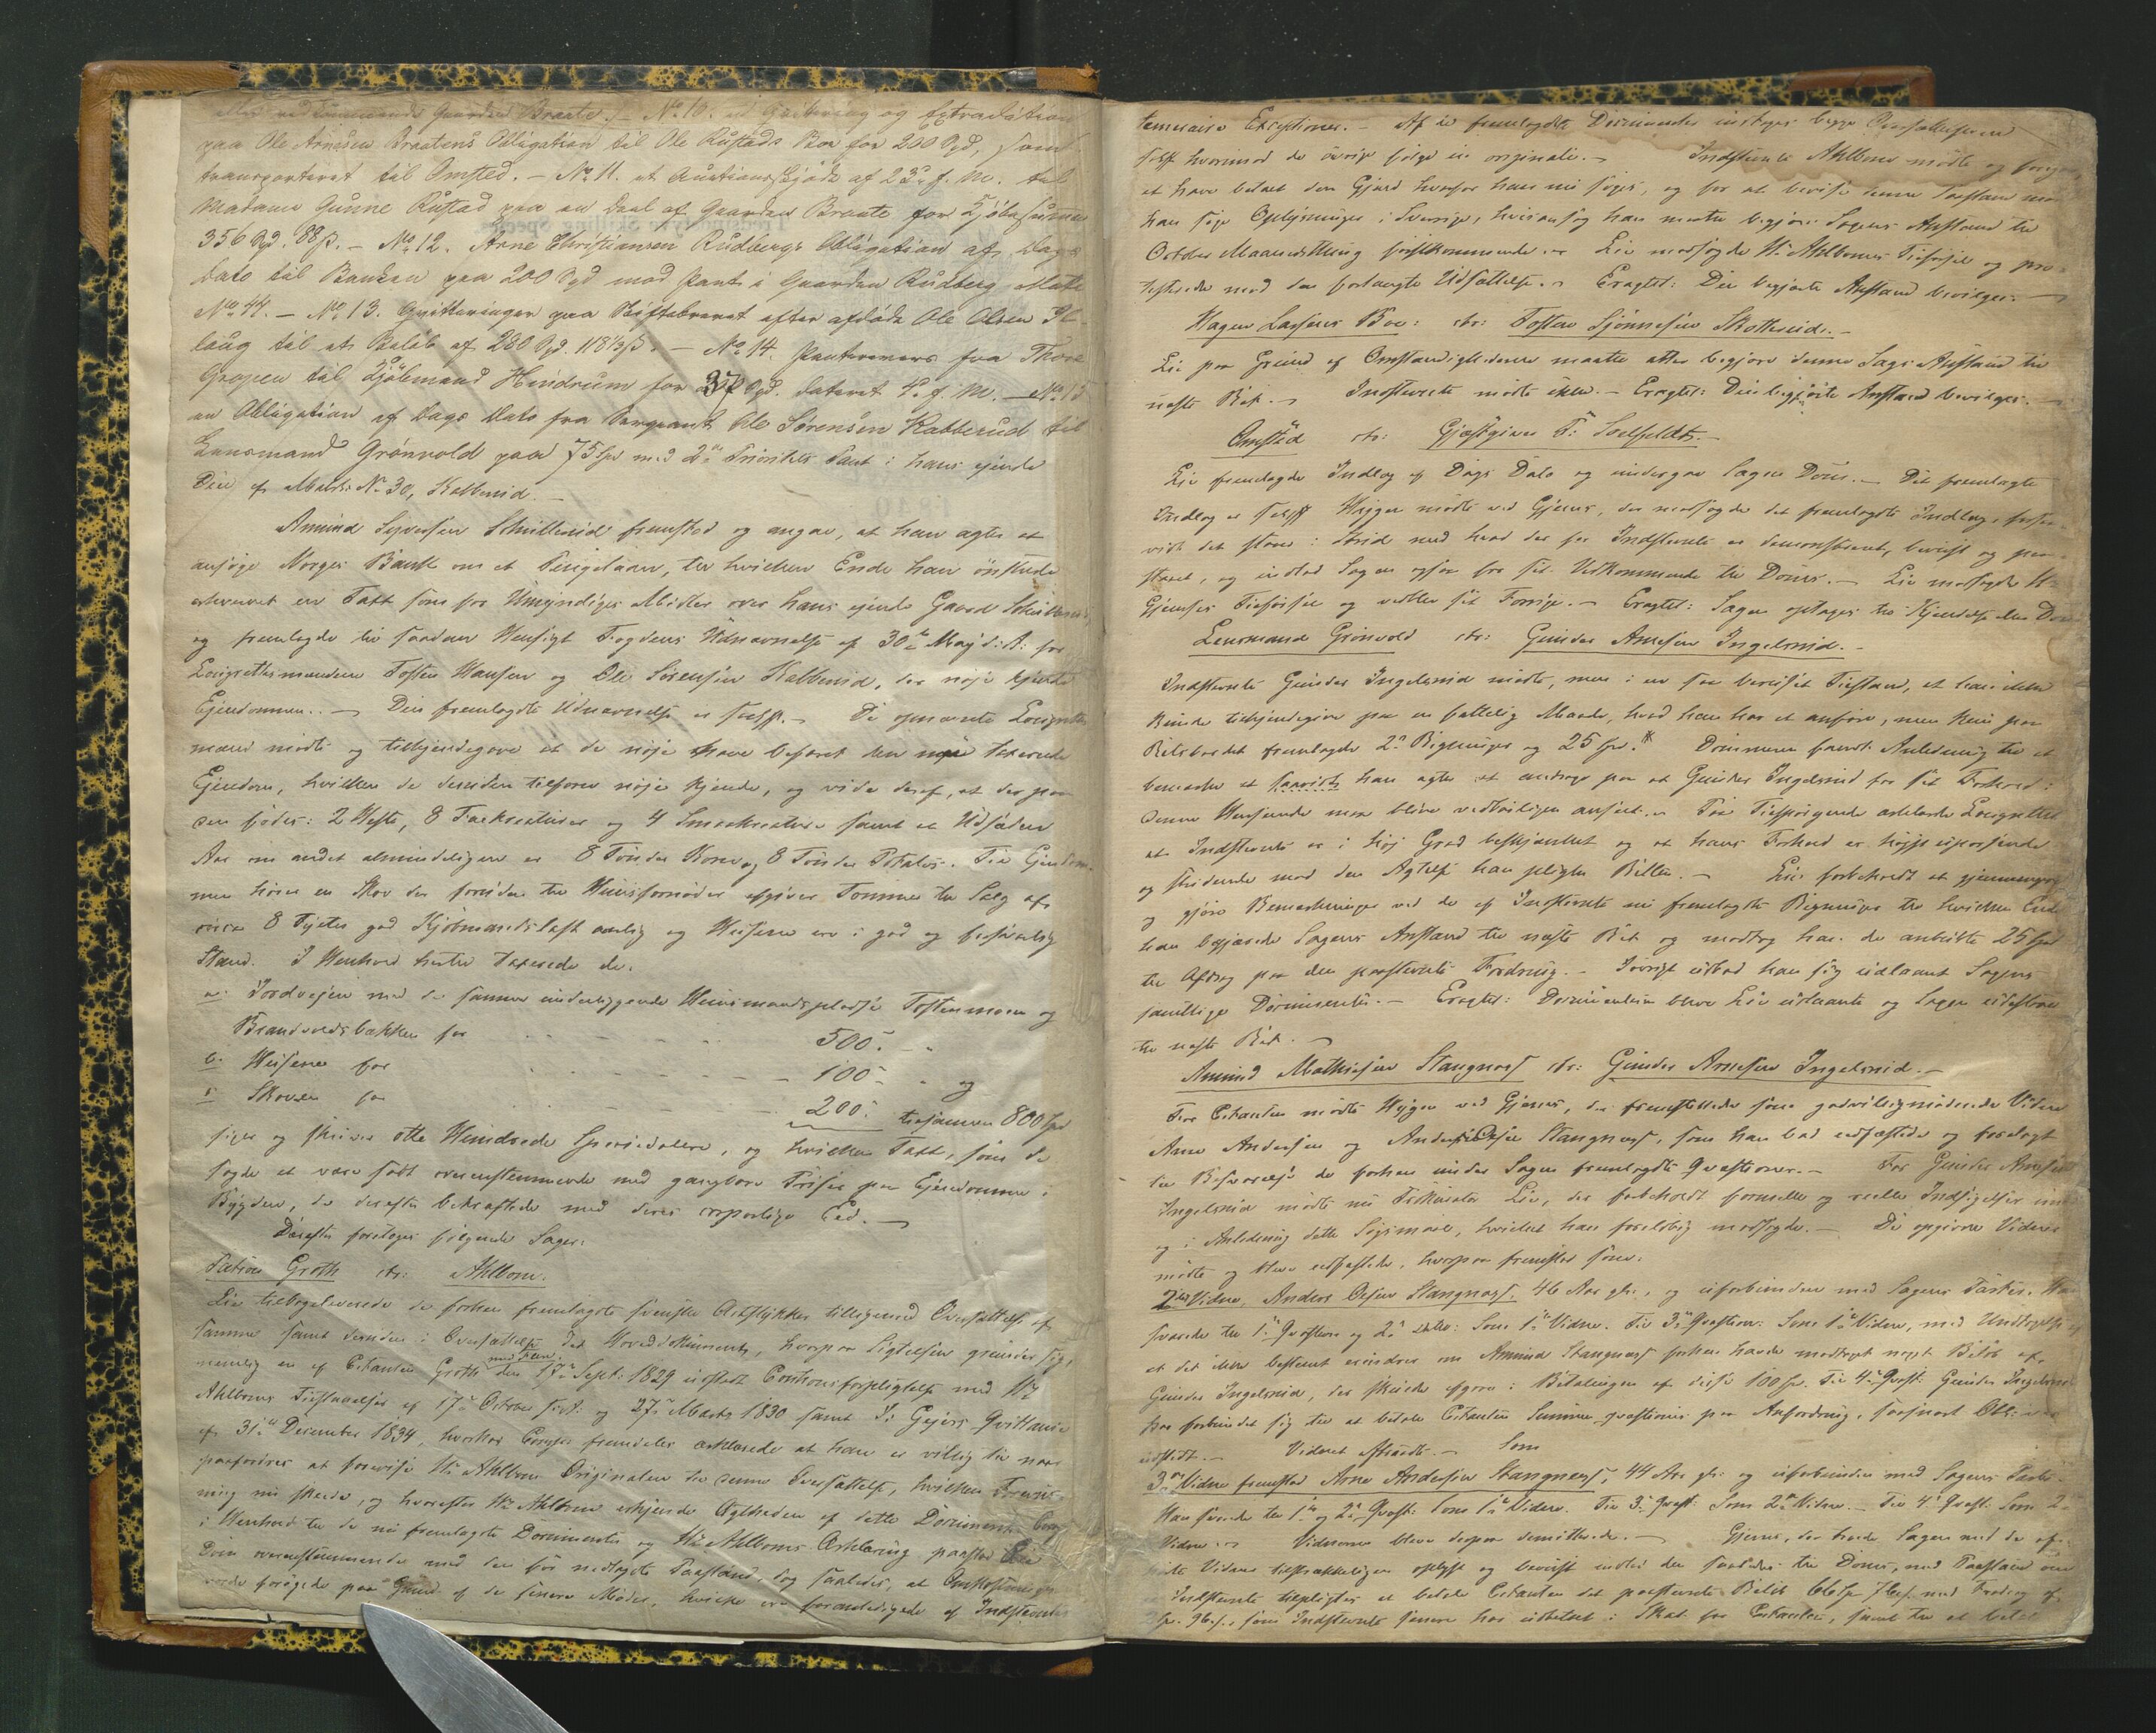 vedkommende Gaarden Braate. – No 10. ed Qvittering og Extradition
paa Ole Arnesen Braatens Obligation til Ole Rustads Boe for 200 Spd, samt
transporteret til Omsted. – No 11. et Auctionsskjøde af 23de f. M. til
Madame Gunne Rustad paa en Deel af Gaarden Braate for Kjøbesummen
356 Spd. 88 ß. – No 12. Arne Christiansen Rudbergs Obligation af Dags
Dato til Banken paa 200 Spd mod Pant i Gaarden Rudberg Matr
No 44. – No 13. Qvitteringer paa Skiftebrevet efter afdøde Ole Olsen
laug til et Beløb af 280 Spd. 118⅓ ß. – No 14. Panteremers fra Thore
Gropen til Kjøbmand Hindrum for 37 Spd. dateret 4de f. M. – No 15
en Obligation af Dags Dato fra Sergeant Ole Sørensen Kabberud til
Lensmand Grønvold paa 75 Spd med 2den Prioritets Pant i hans eiende
Deel af Matr: No 30, Kabberud. –
Amund Syversen fremstod og angav, at han agter at
ansøge Norges Bank om et Pengelaan, til hvilken Ende han ønskede
erhvervet en Taxt som for Umyndiges Midler over hans eiende Gaard
og fremlagde til saadan Hensigt Fogdens Udnævnelse af 30te May d: A: for
Laugrettesmændene Tosten Hansen og Ole Sørensen Kabberud, der nøie kjende
Eiendommen. – Den fremlagde Udnævnelse er – De opnævnte Laugrettes
mænd mødte og tilkjendegave at de nøie have befaret den taxerende
Ejendom, hvilken de desuden tilforn nøie kjende, og vide deraf, at der paa
den fødes: 2 Heste, 8 Fækreaturer og 4 Smaakreature samt at Udsæden
Aar om andet almindeligen er 8 Tønder Korn og 8 Tønder Potatos. Til Eiendom-
men hører en Skov der foruden til Huusfornøden afgiver Tømmer til Salg af
circa 8 Tylter god Kjøbmandslast aarlig og Husene ere i god og forsvarlig
Stand. I Henhold hertil taxerede de:
a. Jordvejen med de samme underliggende Huusmandspladse Tostenmoen og
Brandvoldsbakken for 500. –
b. Husene for 100 – „ og
c. Skoven for 200. tilsammen 800 Spd
siger og skriver otte Hundrede Speciedalere, og hvilken Taxt, som de
sagde at være sat overensstemmende med gangbare Priser paa Ejendomme i
Bygden, de derefter bekræftede med deres corporlige Eed. –
Derefter foretoges følgende Sager:
Groth ctr: Ahlbom.
Lie tilbageleverede de forhen fremlagte svenske Actstykker tilligemed Oversættelse af
samme samt desuden i Oversættelse det Hoveddokument, hvorpaa Sigtelsen grunder sig,
nemlig en af Citanten Groth med flere den 17de Sept: 1829 udstedt Cautionsforpligtelse med Hr
Ahlboms Tilstaaelser af 17de October s: A: og 27de Marts 1830 samt Gejers Qvittance
af 31te December 1834, hvorhos Comp: fremdeles erklærede at han er villig til naar
paafordres at forevise Hr Ahlbom Originalen til denne Oversættelse, hvilken Forevis-
ning nu skeede, og hvorefter Hr Ahlbom erkjendte Ægtheden af dette Document.
i Henhold til de nu fremlagte Documenter og Hr Ahlboms Erklæring paastod Lie
Dom overensstemmende med den før nedlagte Paastand, dog saaledes, at Omkostningerne
forøgede paa Grund af de senere Møder, hvilke ere foranledigede af Indstevntes
temeraire Exceptioner. – Af de fremlagte Documenter indtages begge Oversættelserne
hvorimod de øvrige følge in originali. – Indstevnte Ahlbom mødte og foregav
at have betalt den Gjæld hvorfor han nu søges, og for at bevise denne Paastand maa
han søge Oplysninger i Sverrige, hvis Aarsag han maatte begjære Sagens Anstand til
October Maanedsthing førstkommende. – Lie modsagde Hr Ahlboms Tilførsel og pro-
testerede mod den forlangte Udsættelse. – Eragtet: Den begjærte Anstand bevilges. –
Hagen Larsens Boe: ctr: Tosten Sjønnesen Skotterud. –
Lie paa Grund af Omstændighederne maatte atter begjære denne Sags Anstand til
næste Ret. – Indstevnte mødte ikke. – Eragtet: Den begjærte Anstand bevilges. –
Omsted ctr: Gjæstgiver T:
Lie fremlagde Indlæg af Dags Dato og indlod Sagen Dom. – Det fremlagte
Indlæg er Hr mødte ved Gjerns, der modsagde det fremlagte Indlæg, forsaa-
vidt det staaer i Strid med hvad der for Indstevnte er demonstreret, beviist og paa-
staaet, og indlod Sagen ogsaa for sit Vedkommende til Doms. – Lie modsagde Hr
Gjernses Tilførsel og vedblev sit Forrige. – Eragtet: Sagen optages til Kjendelse eller Dom
Lensmand Grønvold ctr: Gunder Arnesen Ingelsrud. –
Indstevnte Gunder Ingelsrud mødte, men i en saa beruset Tilstand, at han ikke
kunde tilkjendegive paa en fattelig Maade, hvad han har at anføre, men kun paa
Retsbordet fremlagde 2de Regninger og 25 Spd.* Dommeren fandt Anledning til at
bemærke at han agter at andrage paa at Gunder Ingelsrud for sit Forhold i
denne Henseende maa blive vedbørligen anseet. – Paa Tilspørgende erklærede Laugrettet
at Indstevnte er i høj Grad beskjænket og at hans Forhold er højst upassende
og stridende mod den Agtelse han skylder Retten. – Lie forbeholdt at gjennemgaae
og gjøre Bemærkninger ved de af Indstevnte nu fremlagte Regninger til hvilken Ende
han begjærede Sagens Anstand til næste Ret og modtog han de anbudte 25 Spd
til Afdrag paa den paastevnte Fordring. – Iøvrigt udbad han sig udlaant Sagens
samtlige Documenter. – Eragtet: Documenterne bleve Lie udlaante og Sagen udsættes
til næste Ret. –
Amund Mathiesen Stangnæss ctr: Gunder Arnesen Ingelsrud. –
For Citanten mødte Hr ved Gjerns, der fremstillede som godvilligmødende Vidner
Arne Andersen og Anders Olsen Stangnæss, som han bad edfæstede og forelagt
til Besvarelse de forhen under Sagen fremlagte Qvæstioner. – For Gunder Arnesen
Ingelsrud mødte nu Prokurator Lie, der forbeholdt formelle og reelle Indsigelser imod
og i Anledning dette Søgsmaal, hvilket han foreløbig modsagde. – De opgivne Vidner
mødte og bleve edfæstede, hvorpaa fremstod som:
2det Vidne, Anders Olsen Stangnæss, 46 Aar gl:, og uforbunden med Sagens Parter. Han
svarede til 1ste Qvæstion og 2den ditto: Som 1ste Vidne. Til 3die Qvæstion: Som 1ste Vidne, med Undtagelse af
at det ikke bestemt erindrer om Amund Stangnæss forhen havde modtaget noget Beløb af
Gunder Ingelsrud, der skulde afgaae i Betalingen af disse 100 Spd. Til 4de Qvæst: Gunder Ingelsrud
har forbundet sig til at betale Citanten Summa qvæstionis paa Anfordring, saasnart Obl: var
udstedt. – Vidnet aftraadte. – Som
3die Vidne fremstod Arne Andersen Stangnæss, 44 Aar gl: og uforbunden med Sagens Parter.
Han svarede til 1ste og 2den Qvæst: Som 1ste Vidne. Til 3die Qvæst: Som 2det Vidne. – Til 4de Qvæst: Som 2det
Vidne. – Vidnerne bleve derpaa demitterede. – Gjerns, der troede Sagen med de af-
hørte Vidner tilstrækkeligen oplyst og beviist indlod den saaledes til Doms, med Paastand om
Indstevnte tilpligtes at betale Citanten det paastevnte Beløb 66 Spd 76 ß med Fradrag af
Spd. 96 ß, som Indstevnte senere har udbetalt i Skat for Citanten, samt til at betale